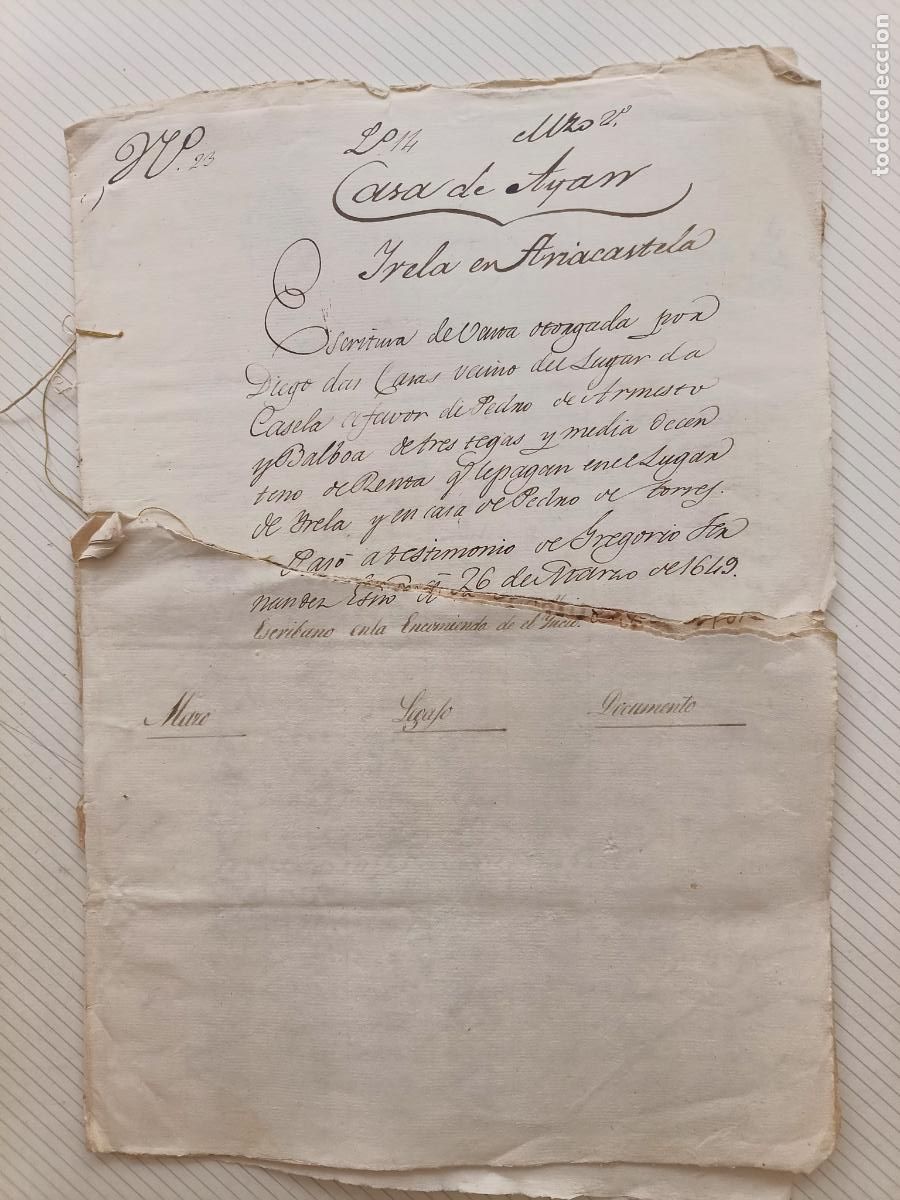 Nº. 23 Lº 14 Mzo 2º.
Casa de Ayan
Yrela en Triacastela
Escritura de Venta otorgada por
Diego das Casas vecino del Lugar da
Casela afavor de Pedro de Armesto
y Balboa de tres tegas y media de cen
teno de Renta q.e le pagan en el Lugar
de Yrela y en casa de Pedro de torres.
Pasó a testimonio de Gregorio Fer
nandez Esno a 26 de Marzo de 1649.
Escribano en la Encomienda de el Yncio
Mazo Legajo Documento
todocoleccion